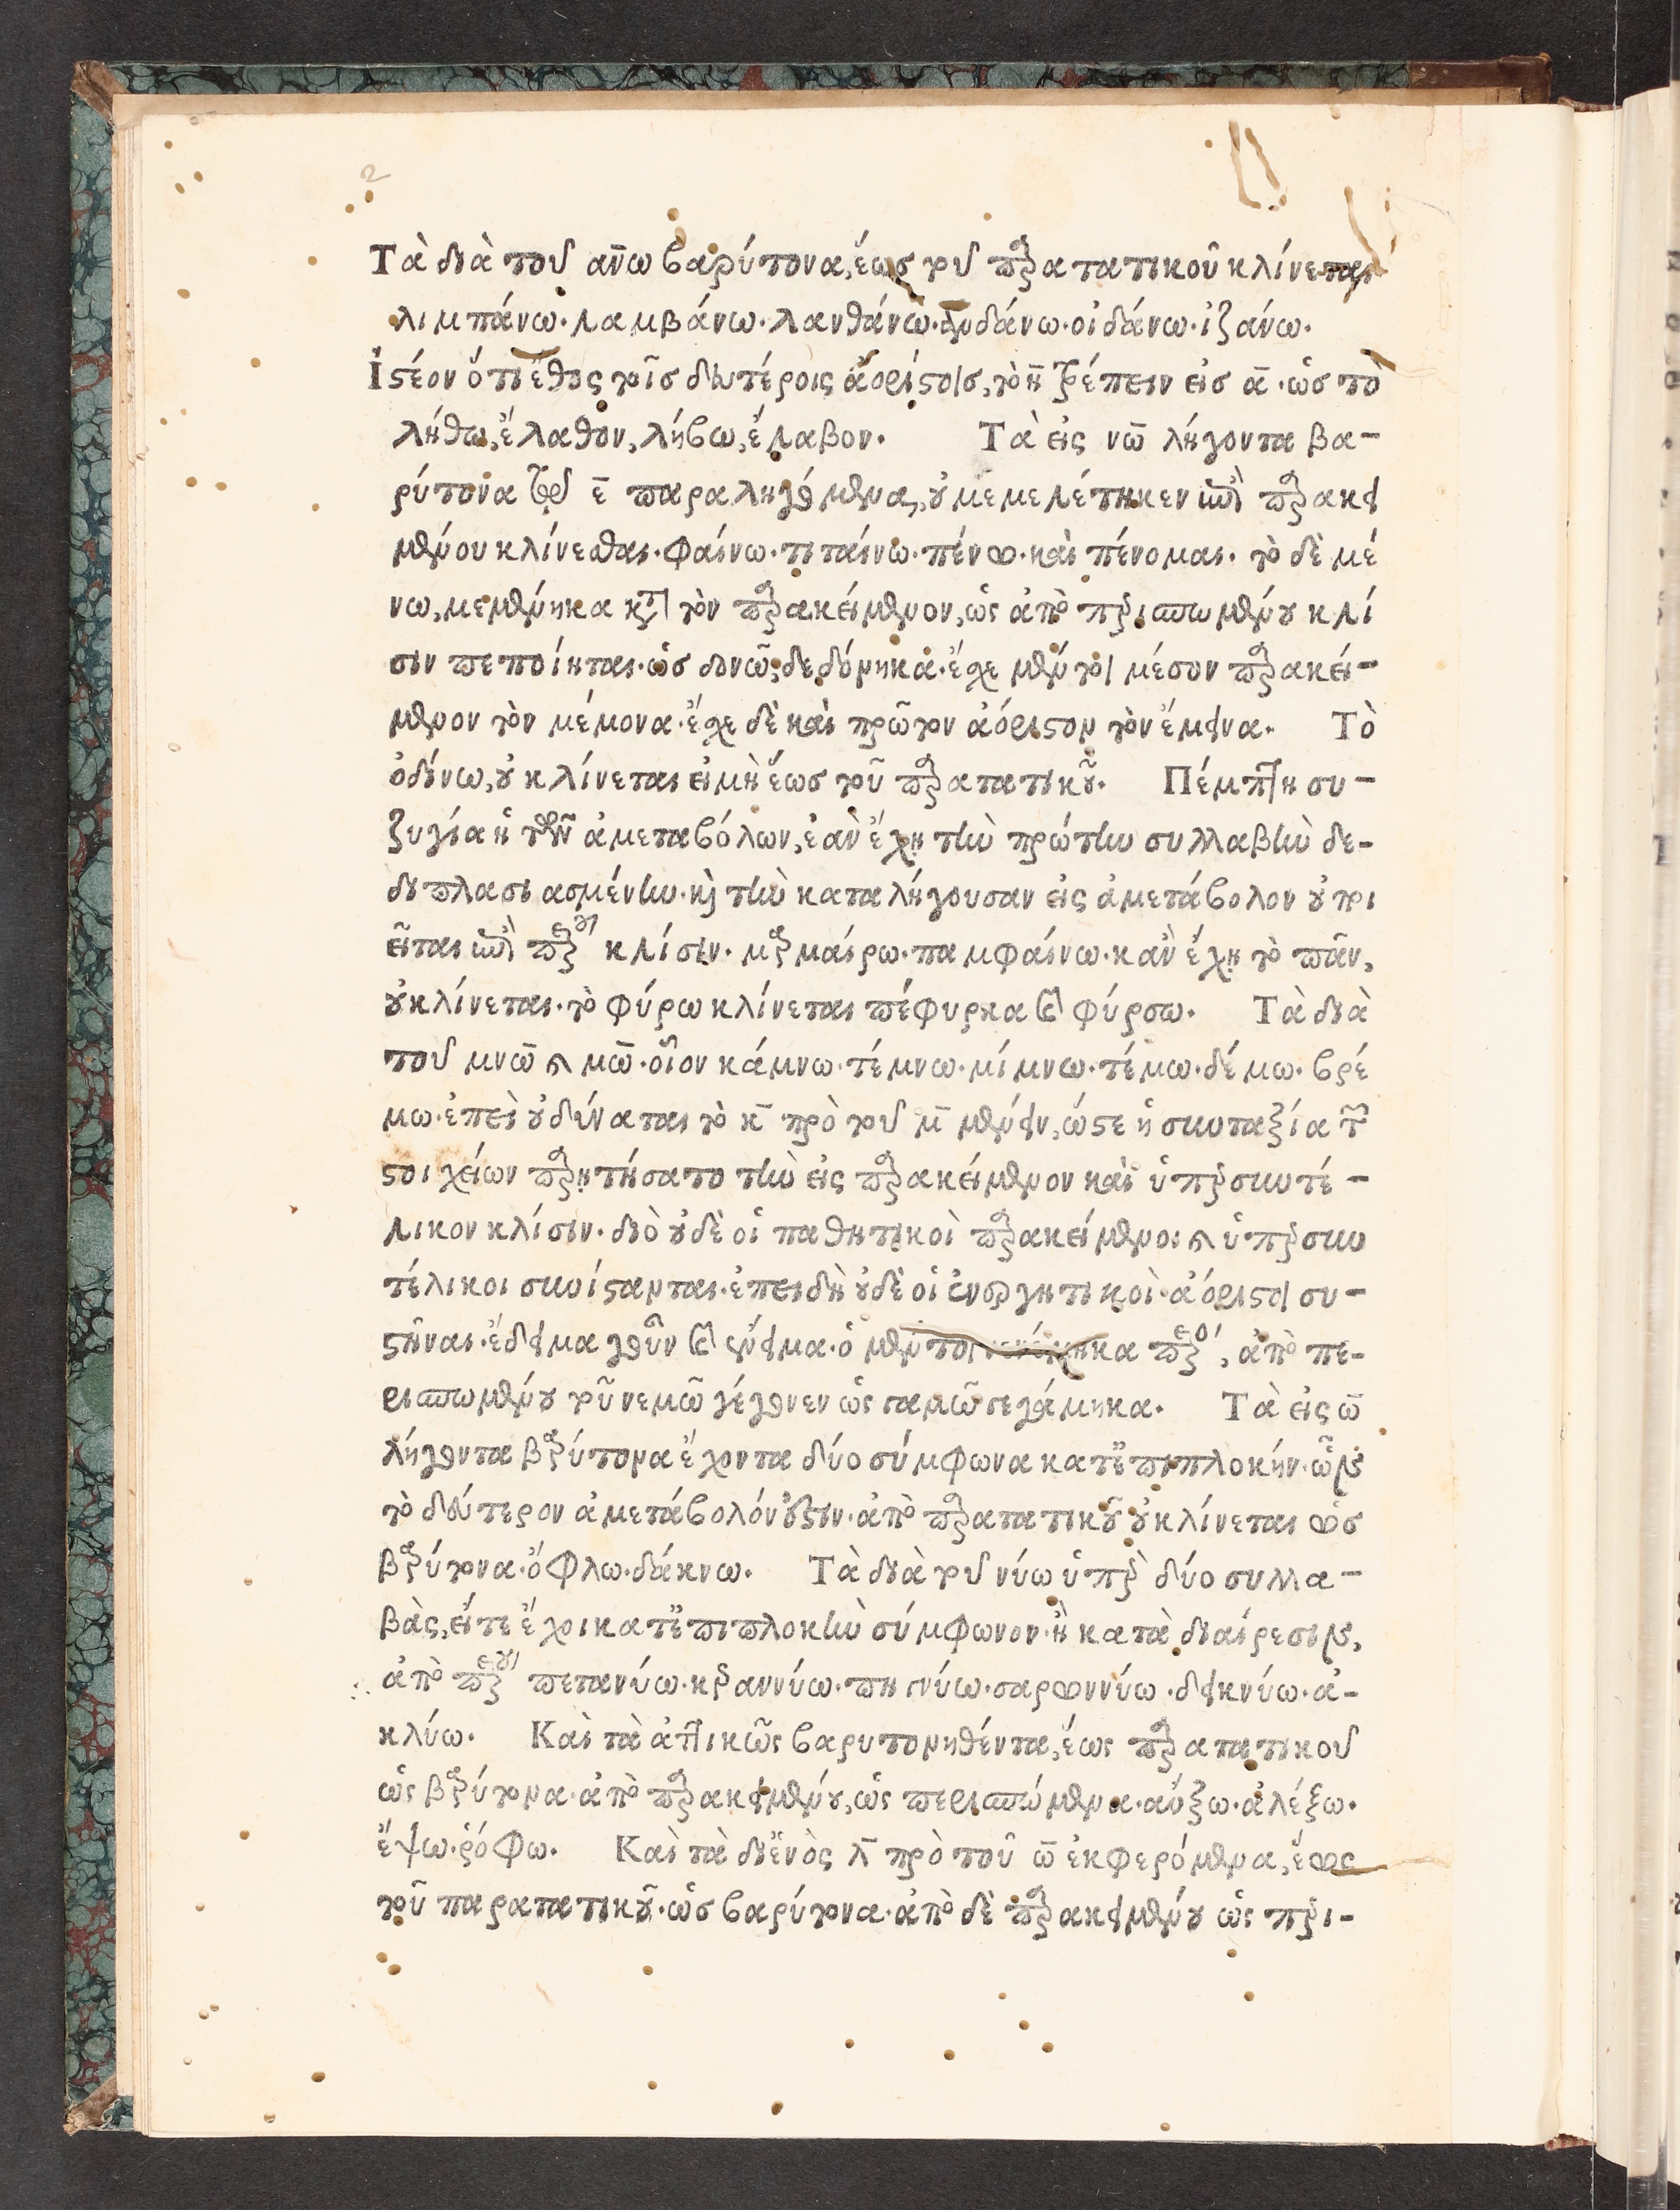 2
Τὰ διὰ τοῦ ανω βαρύτονα, ἕως τοῦ παρατατικοῦ κλίνεται
λιμπάνω· λαμβάνω· λανθάνω· ἁνδάνω· οἰδάνω· ἱζάνω.
Ἰστέον ὅτι ἔθος τοῖς δευτέροις ἀορίστοις, τὸ η̄ τρέπειν εἰς ᾱ· ὡς τὸ
λήθω, ἔλαθον, λήβω, ἔλαβον. Τὰ εἰς νω̄ λήγοντα βα-
ρύτονα τῷ ε̄ παραληγόμενα, οὐ μεμελέτηκεν ἐπὶ παρακει
μένου κλίνεσθαι· φαίνω· τιταίνω· πένω· καὶ πένομαι. τὸ δὲ μέ
νω, μεμένηκα κατὰ τὸν παρακείμενον, ὡς ἀπὸ περισπωμένου κλί
σιν πεποίηται· ὡς δονῶ, δεδόνηκα· ἔχει μέντοι μέσον παρακεί-
μενον τὸν μέμονα· ἔχει δὲ καὶ πρῶτον ἀόριστον τὸν ἔμεινα. Τὸ
ὀδίνω, οὐ κλίνεται εἰ μὴ ἕως τοῦ παρατατικοῦ. Πέμπτη συ-
ζυγία ἡ τῶν ἀμεταβόλων, ἐὰν ἔχῃ τὴν πρώτην συλλαβὴν δε-
διπλασιασμένην· καὶ τὴν καταλήγουσαν εἰς ἀμετάβολον οὐ ποι
εῖται ἐπὶ κλίσιν· μαρμαίρω· παμφαίνω· κἂν ἔχῃ τὸ πᾶν,
οὐ κλίνεται· τὸ φύρω κλίνεται πέφυρκα καὶ φύρσω. Τὰ διὰ
τοῦ μνω̄ καὶ μω̄· οἷον κάμνω· τέμνω· μίμνω· τέμω· δέμω· βρέ
μω· ἐπεὶ οὐ δύναται τὸ κ̄ πρὸ τοῦ μ̄ μένειν, ὥστε ἡ συνταξία τῶν
στοιχείων παρῃτήσατο τὴν εἰς παρακείμενον καὶ ὑπερσυντέ-
λικον κλίσιν· διὸ οὐδὲ οἱ παθητικοὶ παρακείμενοι καὶ ὑπερσυν
τέλικοι συνίστανται· ἐπειδὴ οὐδὲ οἱ ἐνεργητικοὶ· ἀόριστοι συ-
στῆναι· ἔδειμα γοῦν καὶ ἔνειμα· ὁ μέντοι νενέμηκα, ἀπὸ πε-
ρισπωμένου τοῦ νεμῶ γέγονεν ὡς γαμῶ γεγάμηκα. Τὰ εἰς ω̄
λήγοντα βαρύτονα ἔχοντα δύο σύμφωνα κατ' ἐπιπλοκήν· ὧν
τὸ δεύτερον ἀμετάβολόν ἐστιν· ἀπὸ παρατατικοῦ οὐ κλίνεται ὡς
βαρύτονα· ὄφλω· δάκνω. Τὰ διὰ τοῦ νύω ὑπὲρ δύο συλλα-
βὰς, εἴτε ἔχοι κατ' ἐπιπλοκὴν σύμφωνον· ἢ κατὰ διαίρεσιν,
ἀπὸ πετανύω· κεραννύω· πηγνύω· σαρωννύω· δεικνύω· ἀ-
κλύω. Καὶ τὰ ἀττικῶς βαρυτονηθέντα, ἕως παρατατικοῦ
ὡς βαρύτονα· ἀπὸ παρακειμένου, ὡς περισπώμενα· αὔξω· ἀλέξω.
ἕψω· ῥόφω. Καὶ τὰ δι' ἑνὸς λ̄ πρὸ τοῦ ω̄ ἐκφερόμενα, ἕως
τοῦ παρατατικοῦ· ὡς βαρύτονα· ἀπὸ δὲ παρακειμένου ὡς περι-